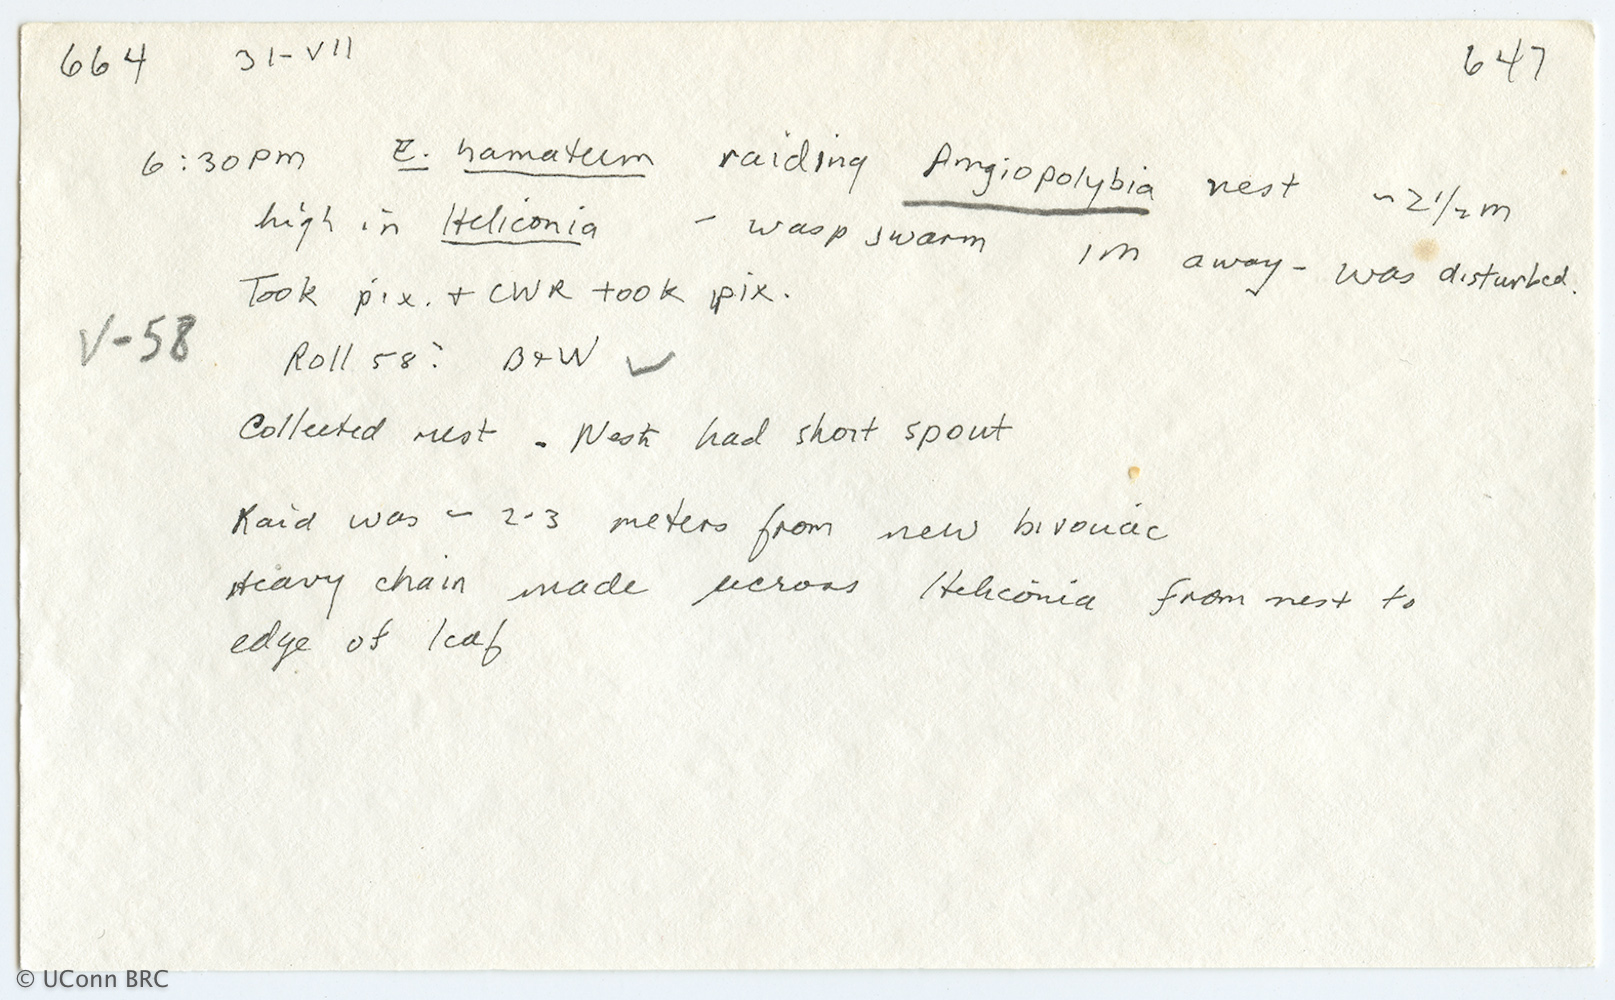 664 31-VII 647
6:30pm E. hamatum raiding Angiopolybia nest ~2 1/2 m
high in Heliconia - wasp swarm 1m away - was disturbed.
Took pix. + CWR took pix.
V-58
Roll 58: B+W ✓
Collected nest. Nest had short spout
Raid was ~ 2-3 meters from new bivouac
Heavy chain made across Heliconia from nest to
edge of leaf
© UConn BRC